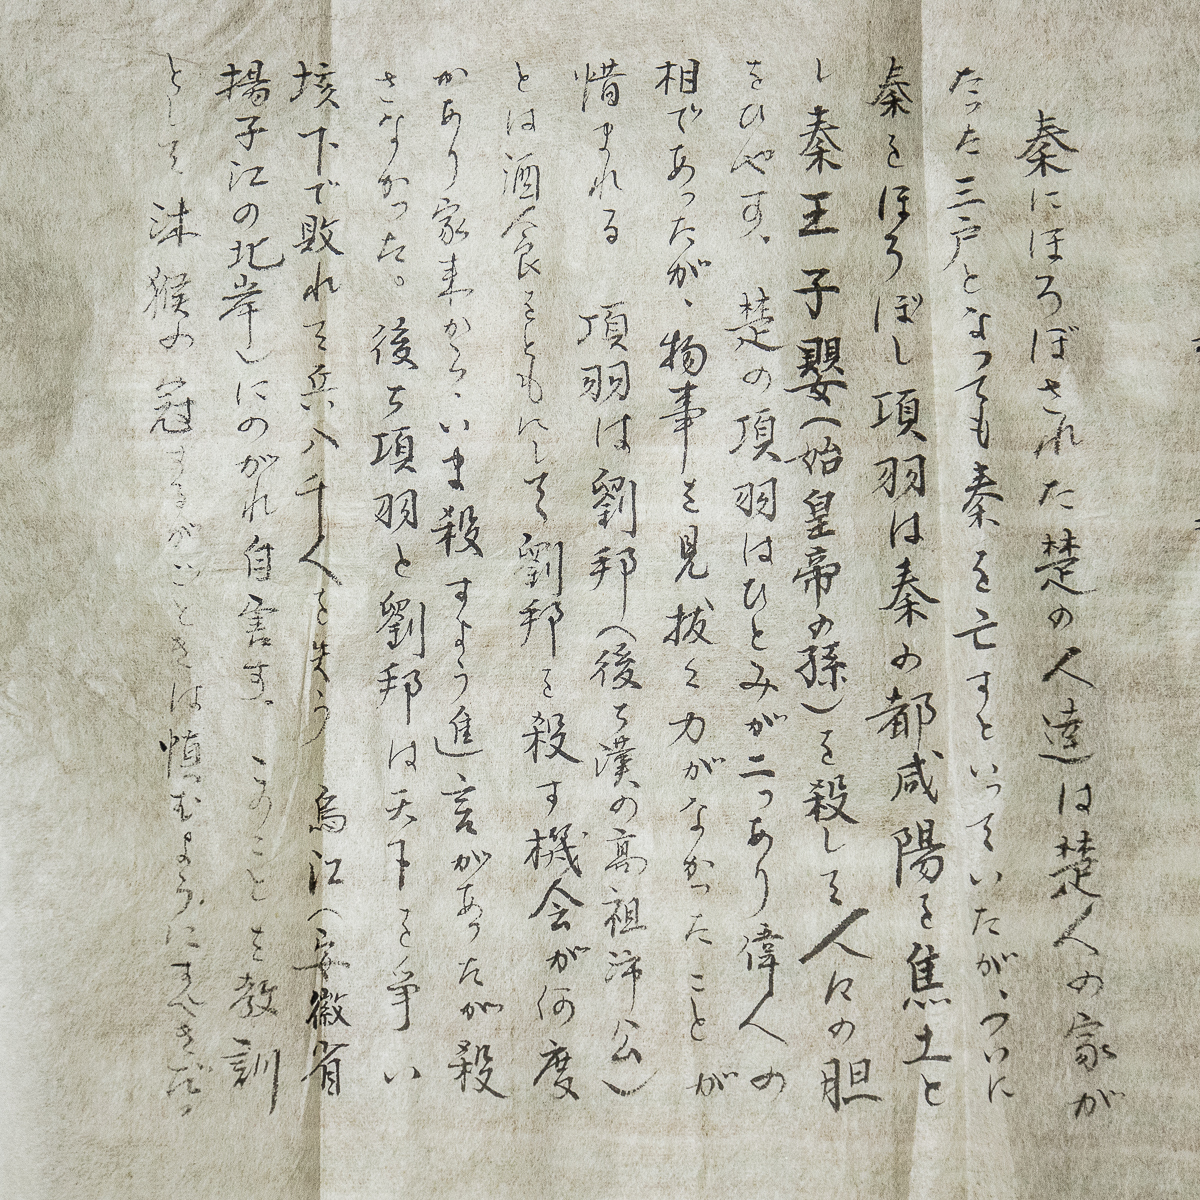 秦にほろぼされた楚の人達は楚人の家が
たった三戸となっても秦を亡すといっていたが、ついに
秦をほろぼし項羽は秦の都咸陽を焦土と
し秦王子嬰(始皇帝の孫)を殺して人々の胆
をひやす、楚の項羽はひとみが二つあり偉人の
相であったが、物事を見抜く力がなかったことが
惜まれる 項羽は劉邦(後ち漢の高祖沛公)
とは酒食をともにして劉邦を殺す機会が何度
かあり家来から、いま殺すよう進言があったが殺
さなかった。後ち項羽と劉邦は天下を争い
垓下で敗れて兵八千人を失う 烏江(安徽省
揚子江の北岸)にのがれ自害す、このことを教訓
として沐猴の冠するがごときは慎むようにすべきだ。